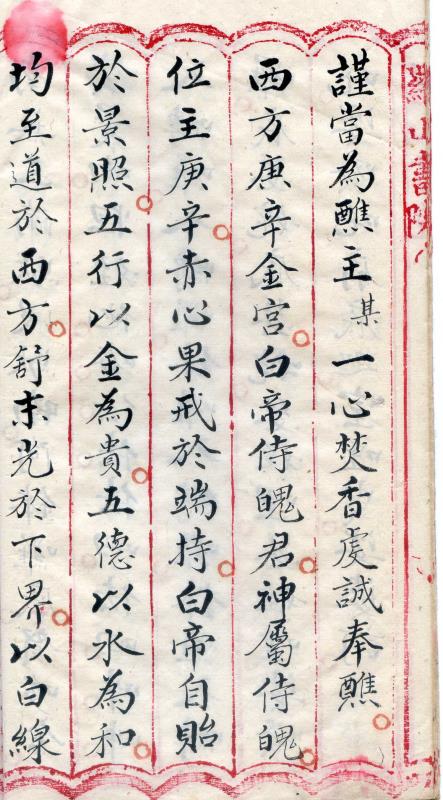 謹當為醮主某一心焚香虔誠奉醮
西方庚辛金宮白帝侍魄君神屬侍魄
位主庚辛赤心果戒於端持白帝自貽
於景照五行以金為貴五德以水為和
均至道於西方舒末光於下界以白線